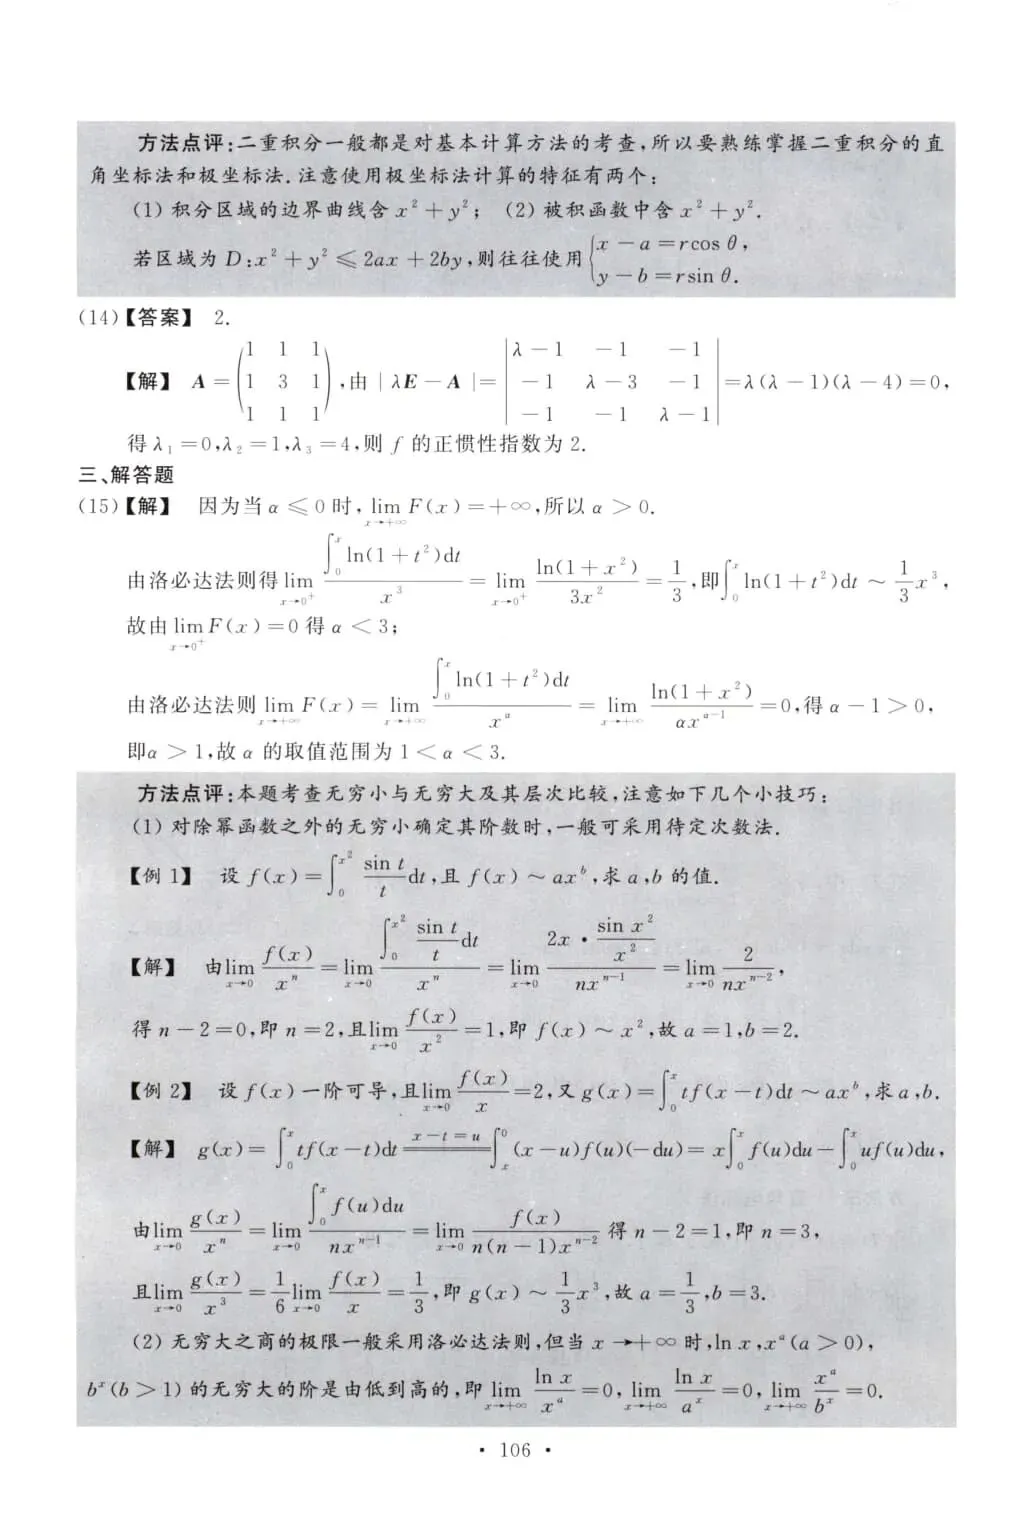 方法点评:二重积分一般都是对基本计算方法的考查,所以要熟练掌握二重积分的直
角坐标法和极坐标法.注意使用极坐标法计算的特征有两个:
(1) 积分区域的边界曲线含 x²+y²; (2) 被积函数中含 x²+y².
若区域为 D:x²+y²≤2ax+2by,则往往使用{x-a=rcos θ, y-b=rsin θ.
(14)【答案】 2.
【解】 A=(1 1 1; 1 3 1; 1 1 1),由|λE-A|=|λ-1 -1 -1; -1 λ-3 -1; -1 -1 λ-1|=λ(λ-1)(λ-4)=0,
得 λ₁=0,λ₂=1,λ₃=4,则 f 的正惯性指数为 2.
三、解答题
(15)【解】 因为当 α≤0 时,lim_{x→+∞} F(x)=+∞,所以 α>0.
由洛必达法则得 lim_{x→0⁺} ∫₀ˣ ln(1+t²)dt / x³ = lim_{x→0⁺} ln(1+x²) / 3x² = 1/3,即∫₀ˣ ln(1+t²)dt ~ 1/3 x³,
故由 lim_{x→0⁺} F(x)=0 得 α<3;
由洛必达法则 lim_{x→+∞} F(x)= lim_{x→+∞} ∫₀ˣ ln(1+t²)dt / x^α = lim_{x→+∞} ln(1+x²) / αx^{α-1} =0,得 α-1>0,
即α>1,故 α 的取值范围为 1<α<3.
方法点评:本题考查无穷小与无穷大及其层次比较,注意如下几个小技巧:
(1) 对除幂函数之外的无穷小确定其阶数时,一般可采用待定次数法.
【例 1】 设 f(x)=∫₀^{x²} sin t / t dt,且 f(x)~ax^b,求 a,b 的值.
【解】 由 lim_{x→0} f(x)/xⁿ = lim_{x→0} ∫₀^{x²} (sin t / t)dt / xⁿ = lim_{x→0} 2x·(sin x² / x²) / nx^{n-1} = lim_{x→0} 2 / nx^{n-2},
得 n-2=0,即 n=2,且 lim_{x→0} f(x)/x² =1,即 f(x)~x²,故 a=1,b=2.
【例 2】 设 f(x)一阶可导,且 lim_{x→0} f(x)/x =2,又 g(x)=∫₀ˣ tf(x-t)dt~ax^b,求 a,b.
【解】 g(x)=∫₀ˣ tf(x-t)dt =(x-t=u)= ∫ₓ⁰ (x-u)f(u)(-du)= x∫₀ˣ f(u)du-∫₀ˣ uf(u)du,
由 lim_{x→0} g(x)/xⁿ = lim_{x→0} ∫₀ˣ f(u)du / nx^{n-1} = lim_{x→0} f(x) / n(n-1)x^{n-2} 得 n-2=1,即 n=3,
且 lim_{x→0} g(x)/x³ = 1/6 lim_{x→0} f(x)/x = 1/3,即 g(x)~1/3 x³,故 a=1/3,b=3.
(2) 无穷大之商的极限一般采用洛必达法则,但当 x→+∞ 时,ln x,x^a(a>0),
b^x(b>1) 的无穷大的阶是由低到高的,即 lim_{x→+∞} ln x / x^a =0, lim_{x→+∞} ln x / a^x =0, lim_{x→+∞} x^a / b^x =0.
· 106 ·